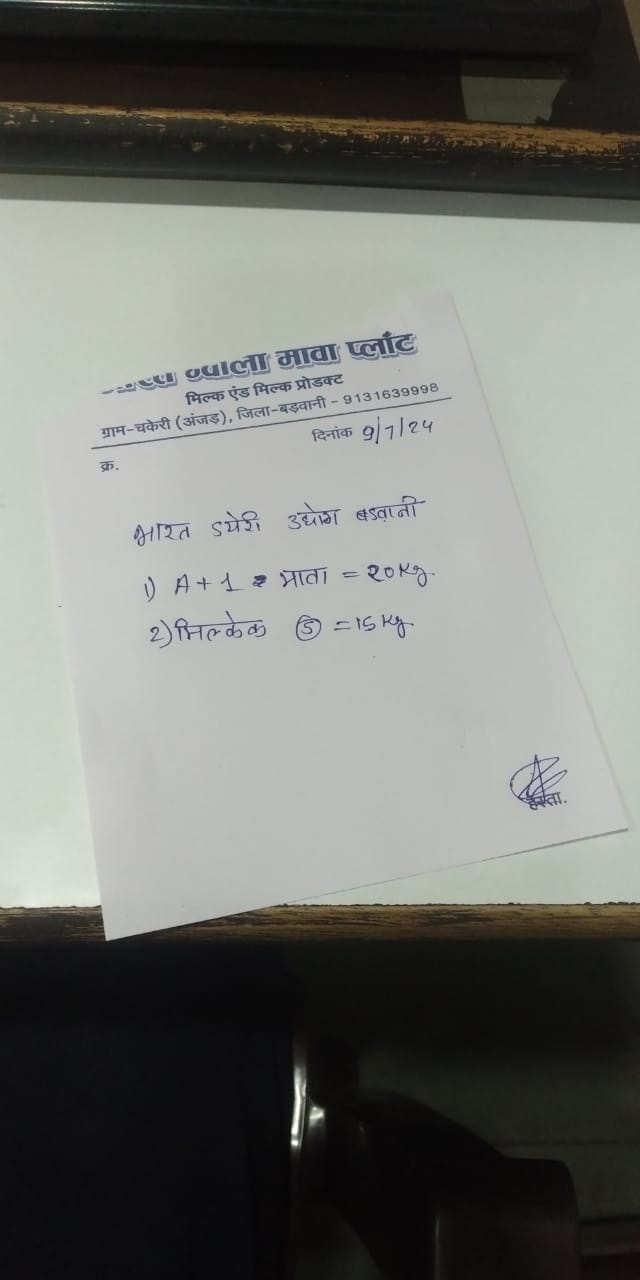 ग्वाला मावा प्लाँट
मिल्क एंड मिल्क प्रोडक्ट
ग्राम-चकेरी (अंजड़), जिला-बड़वानी - 9131639998
दिनांक 9/7/24
क्र.
भारत डयेरी उधोग बडवानी
1) A+1 माता = 20 Kg.
2) मिल्केक (5) = 15 Kg.
हस्ता.